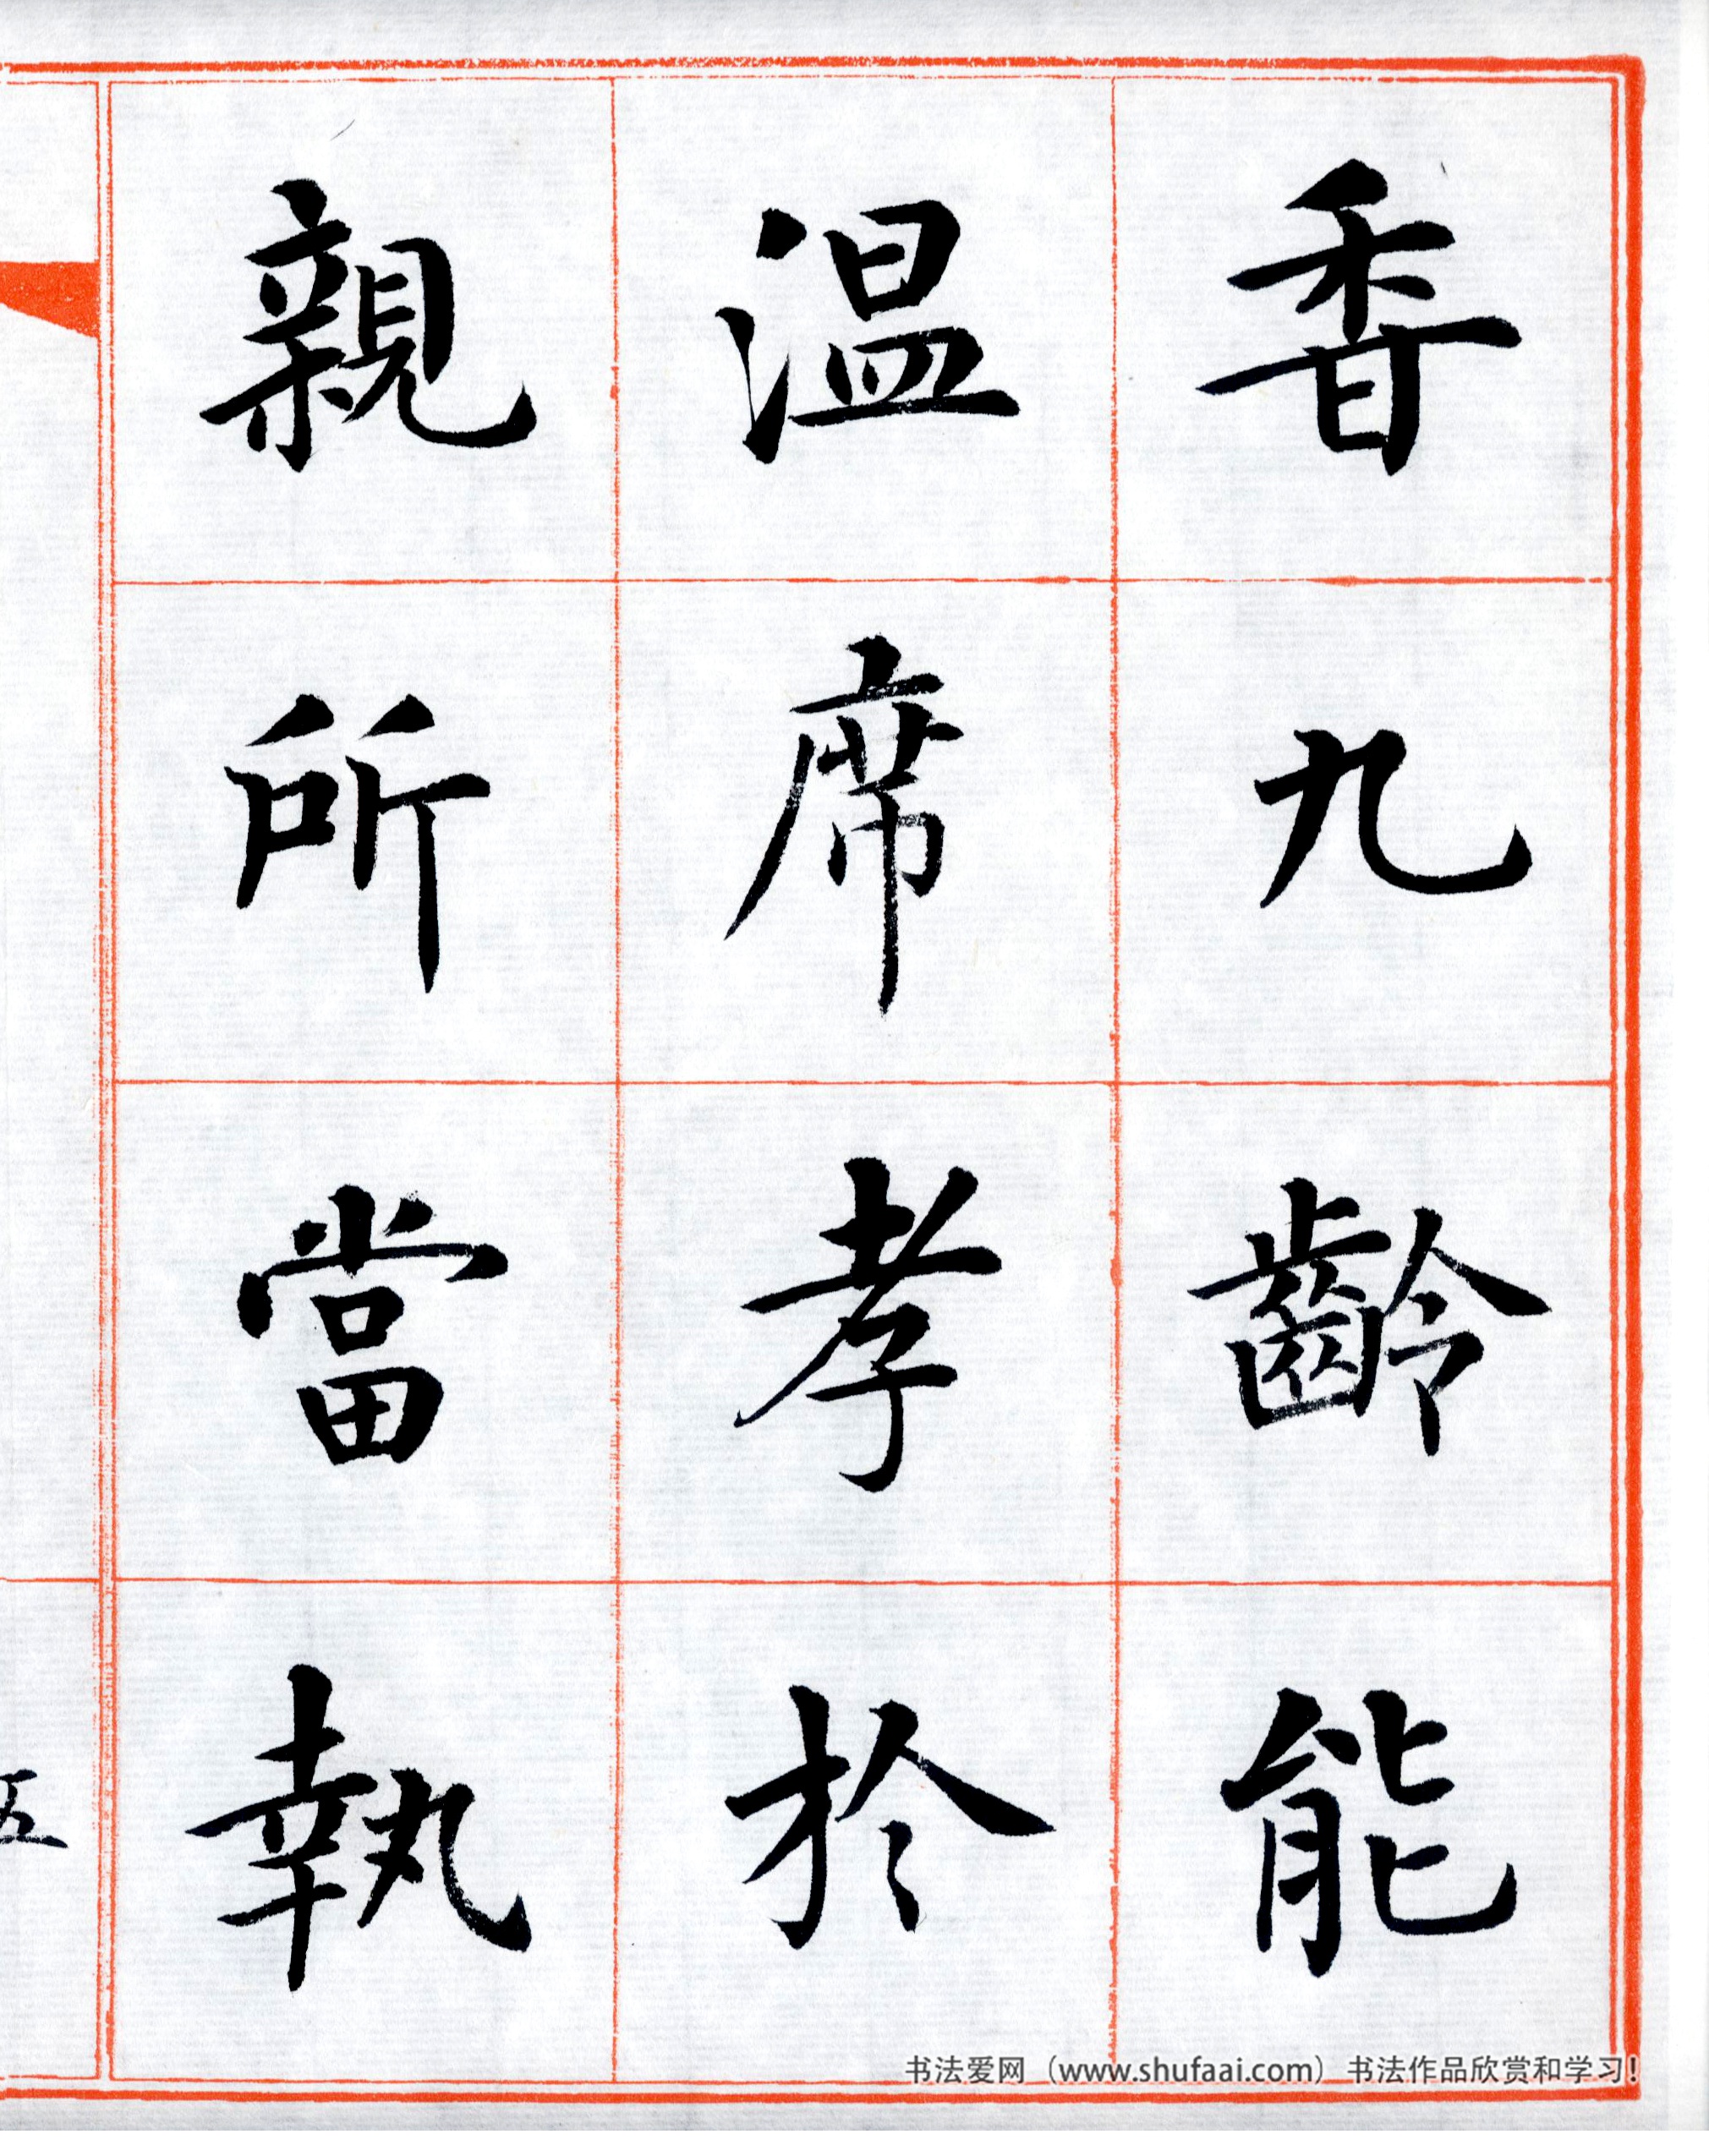 香九齡能
温席孝於
親所當執
五
书法爱网（www.shufaai.com）书法作品欣赏和学习！